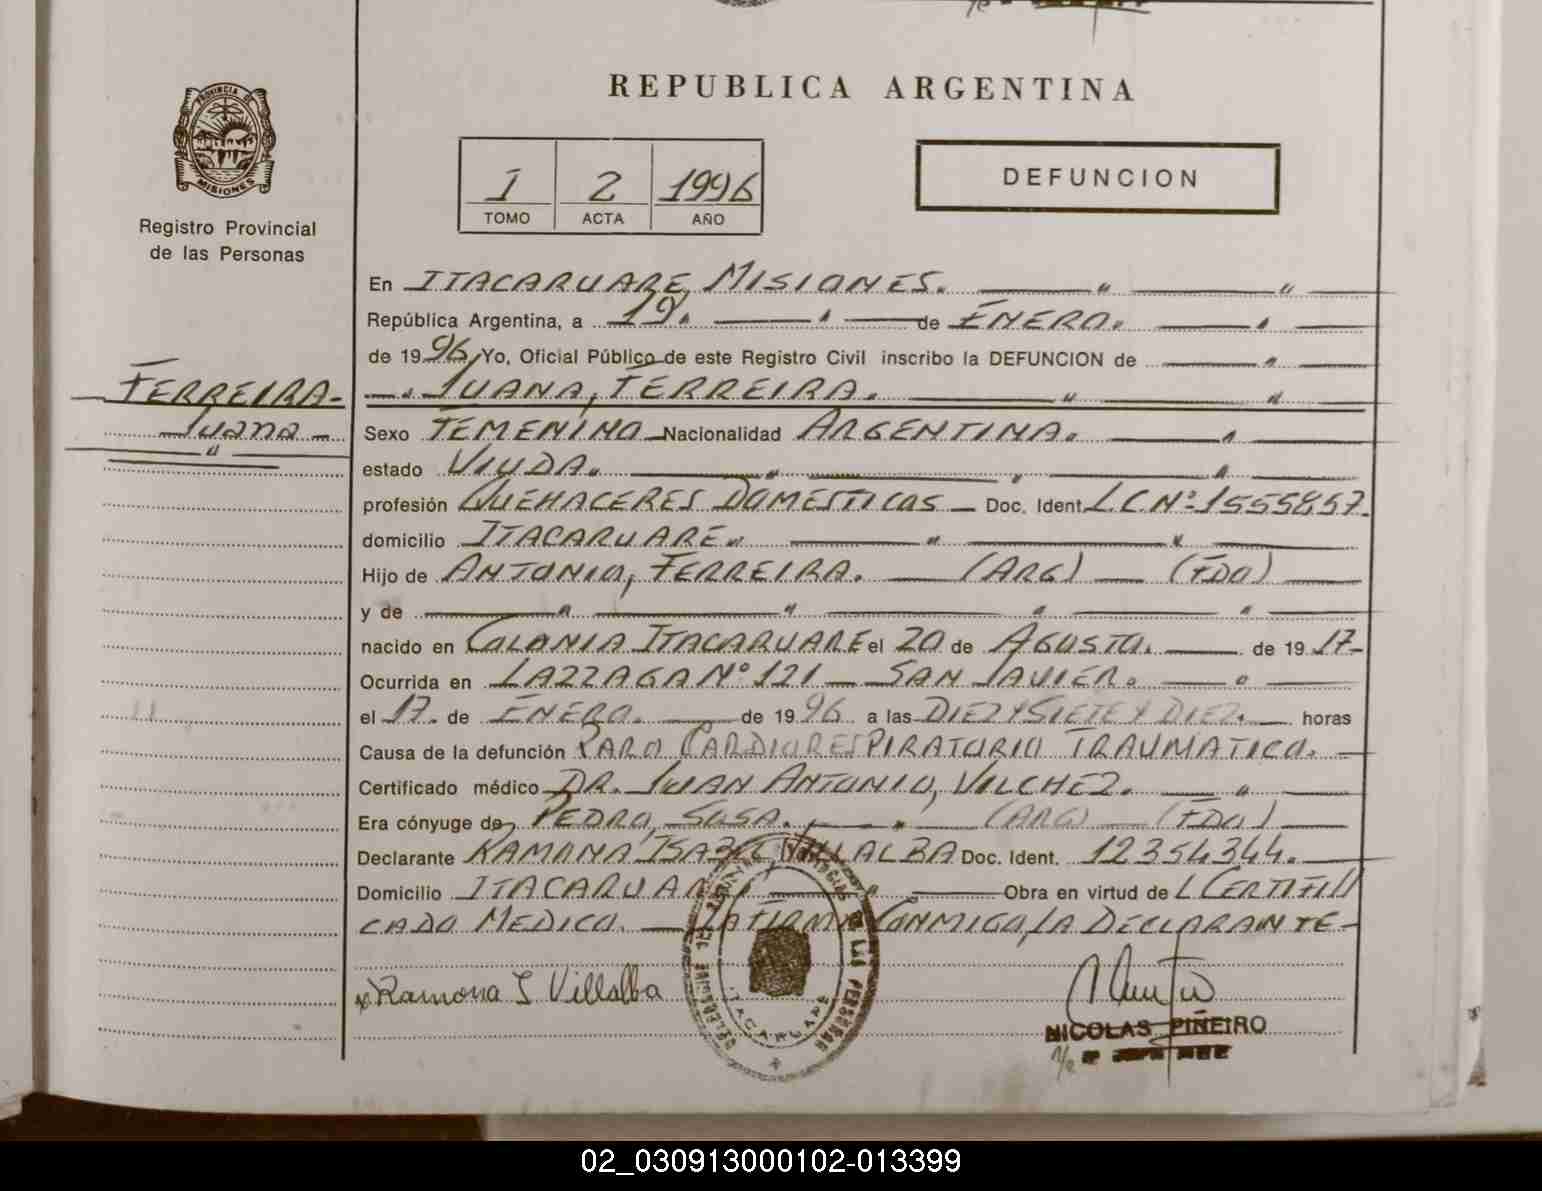 REPUBLICA ARGENTINA
PROVINCIA DE
MISIONES
Registro Provincial
de las Personas
1 2 1996
TOMO ACTA AÑO
DEFUNCION
En ITACARUARE, MISIONES.
República Argentina, a 19. de ENERO.
de 1996, Yo, Oficial Público de este Registro Civil inscribo la DEFUNCION de
FERREIRA-
Juana-
JUANA, FERREIRA.
Sexo FEMENINO Nacionalidad ARGENTINA.
estado VIUDA.
profesión QUEHACERES DOMESTICOS - Doc. Ident. L.C.Nº-1555857.
domicilio ITACARUARE.
Hijo de ANTONIO, FERREIRA. (ARG) (FDO)
y de
nacido en COLONIA ITACARUARE el 20 de AGOSTO. de 1917-
Ocurrida en LAZZAGA Nº 121 - SAN JAVIER.
el 17. de ENERO. de 1996 a las DIEZ Y SIETE Y DIEZ. horas
Causa de la defunción PARO CARDIORESPIRATORIO TRAUMATICO.
Certificado médico DR. JUAN ANTONIO, VILCHEZ.
Era cónyuge de PEDRO, SOSA. (ARG) (FDO)
Declarante RAMONA ISABEL, VILLALBA Doc. Ident. 12354344.
Domicilio ITACARUARE Obra en virtud de CERTIFI
CADO MEDICO. FIRMA CONMIGO, LA DECLARANTE-
Ramona I Villalba
ITACARUARE
DE LAS PERSONAS
NICOLAS PIÑEIRO
02_030913000102-013399